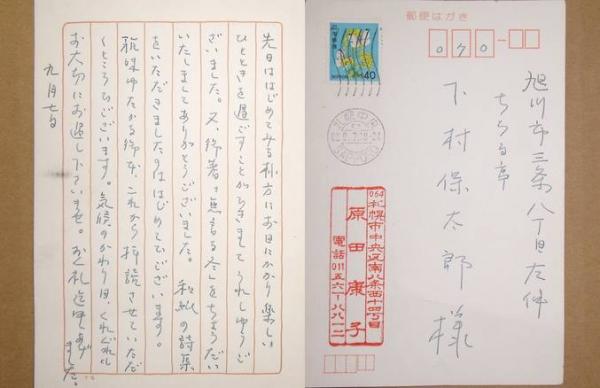 先日ははじめて方にお目にかかり楽しい
ひとときを過ごすことができましてうれしゅうご
ざいました。又、御著をちょうだい
いたしましてありがとうございました。和紙の詩集
をいただきましたのははじめてでございます。
ゆたかな御本、これから拝読させていただ
くところでございます。気候のかわり目、くれぐれも
お大切にお過し下さいませ。お礼迄申しあげ
ました。
九月七日
郵便はがき
070-
40
旭川市三条八丁目
ちろる
下村保太郎様
064
札幌市中央区南八条西十四丁目
原田康子
電話011五六一ー八八一二